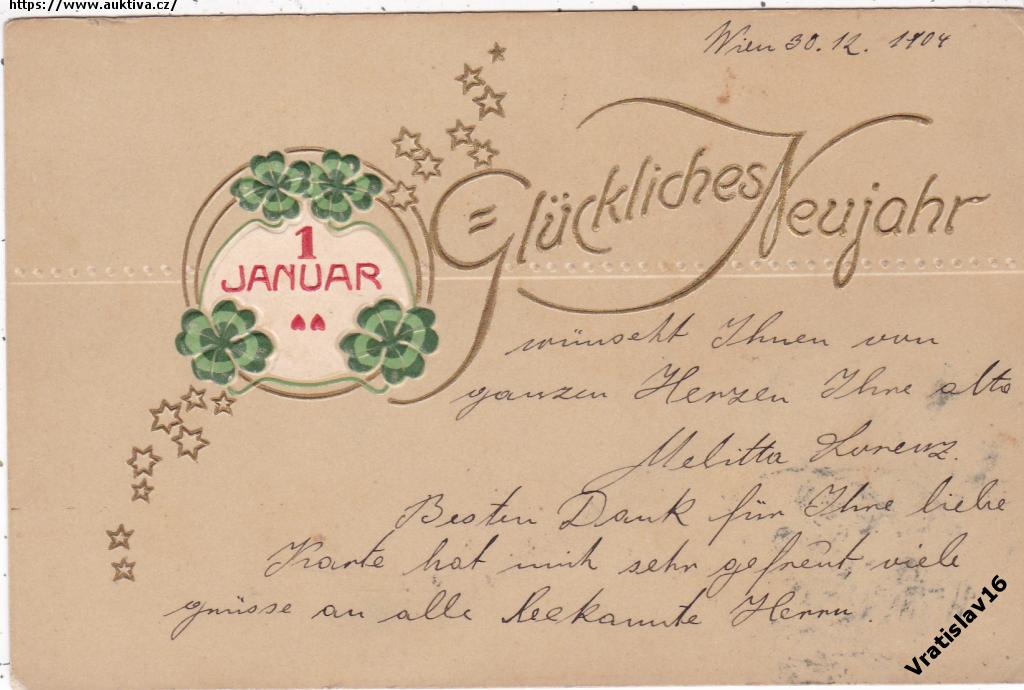 https://www.auktiva.cz/
Wien 30. 12. 1904
Glückliches Neujahr
1
JANUAR
wünscht Ihnen von
ganzen Herzen Ihre alte
Melitta Lorenz.
Besten Dank für Ihre liebe
Karte hat mich sehr gefreut viele
grüsse an alle Beekannte Herrn.
Vratislav16